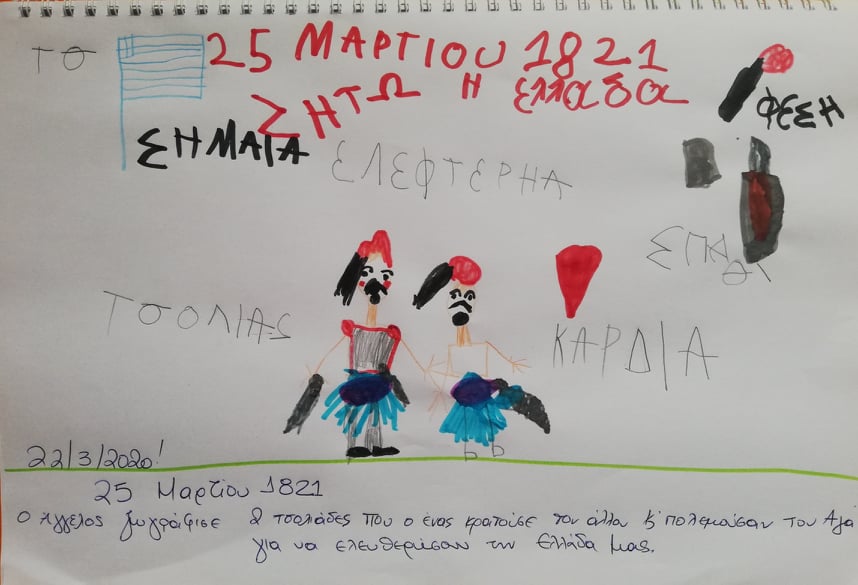 ΤΟ 25 ΜΑΡΤΙΟυ 1821
ΣΗΤΩ Η ελλαδα
ΦΕΣΗ
ΣΗΜΑΙΑ
ΕΛΕΦΤΕΡΗΑ
ΣΠΑΘΙ
ΤΣΟΛΙΑΣ
ΚΑΡΔΙΑ
22/3/2020!
25 Μαρτίου 1821
Ο Άγγελος ζωγράφισε 2 τσολιάδες που ο ένας κρατούσε τον άλλον κ' πολεμούσαν τον Αγά
για να ελευθερώσουν την Ελλάδα μας.